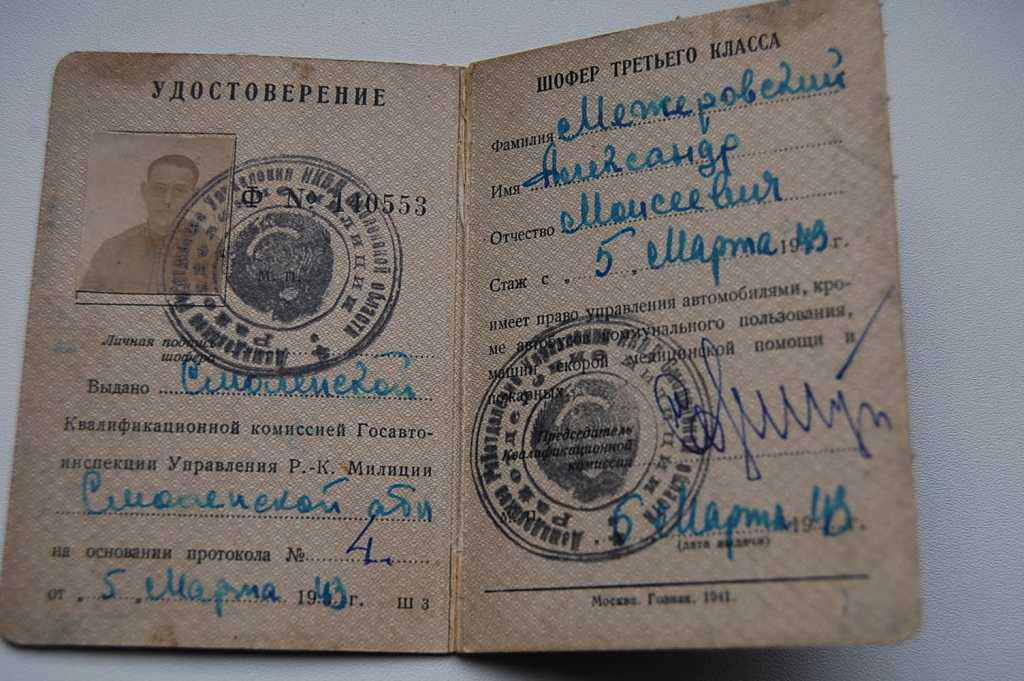 УДОСТОВЕРЕНИЕ
Ф № 140553
М. П.
Личная подпись
шофера
Выдано Смоленской
Квалификационной комиссией Госавто-
инспекции Управления Р.-К. Милиции
Смоленской обл
на основании протокола № 4.
от „ 5 „ Марта 1943 г. Ш 3
ШОФЕР ТРЕТЬЕГО КЛАССА
Фамилия Межеровский
Имя Александр
Отчество Моисеевич
Стаж с „ 5 „ Марта 1943 г.
имеет право управления автомобилями, кро-
ме автобусов коммунального пользования,
машин скорой медицинской помощи и
пожарных.
Председатель
Квалификационной
комиссии
5 Марта 1943 г.
(дата выдачи)
Москва. Гознак. 1941.